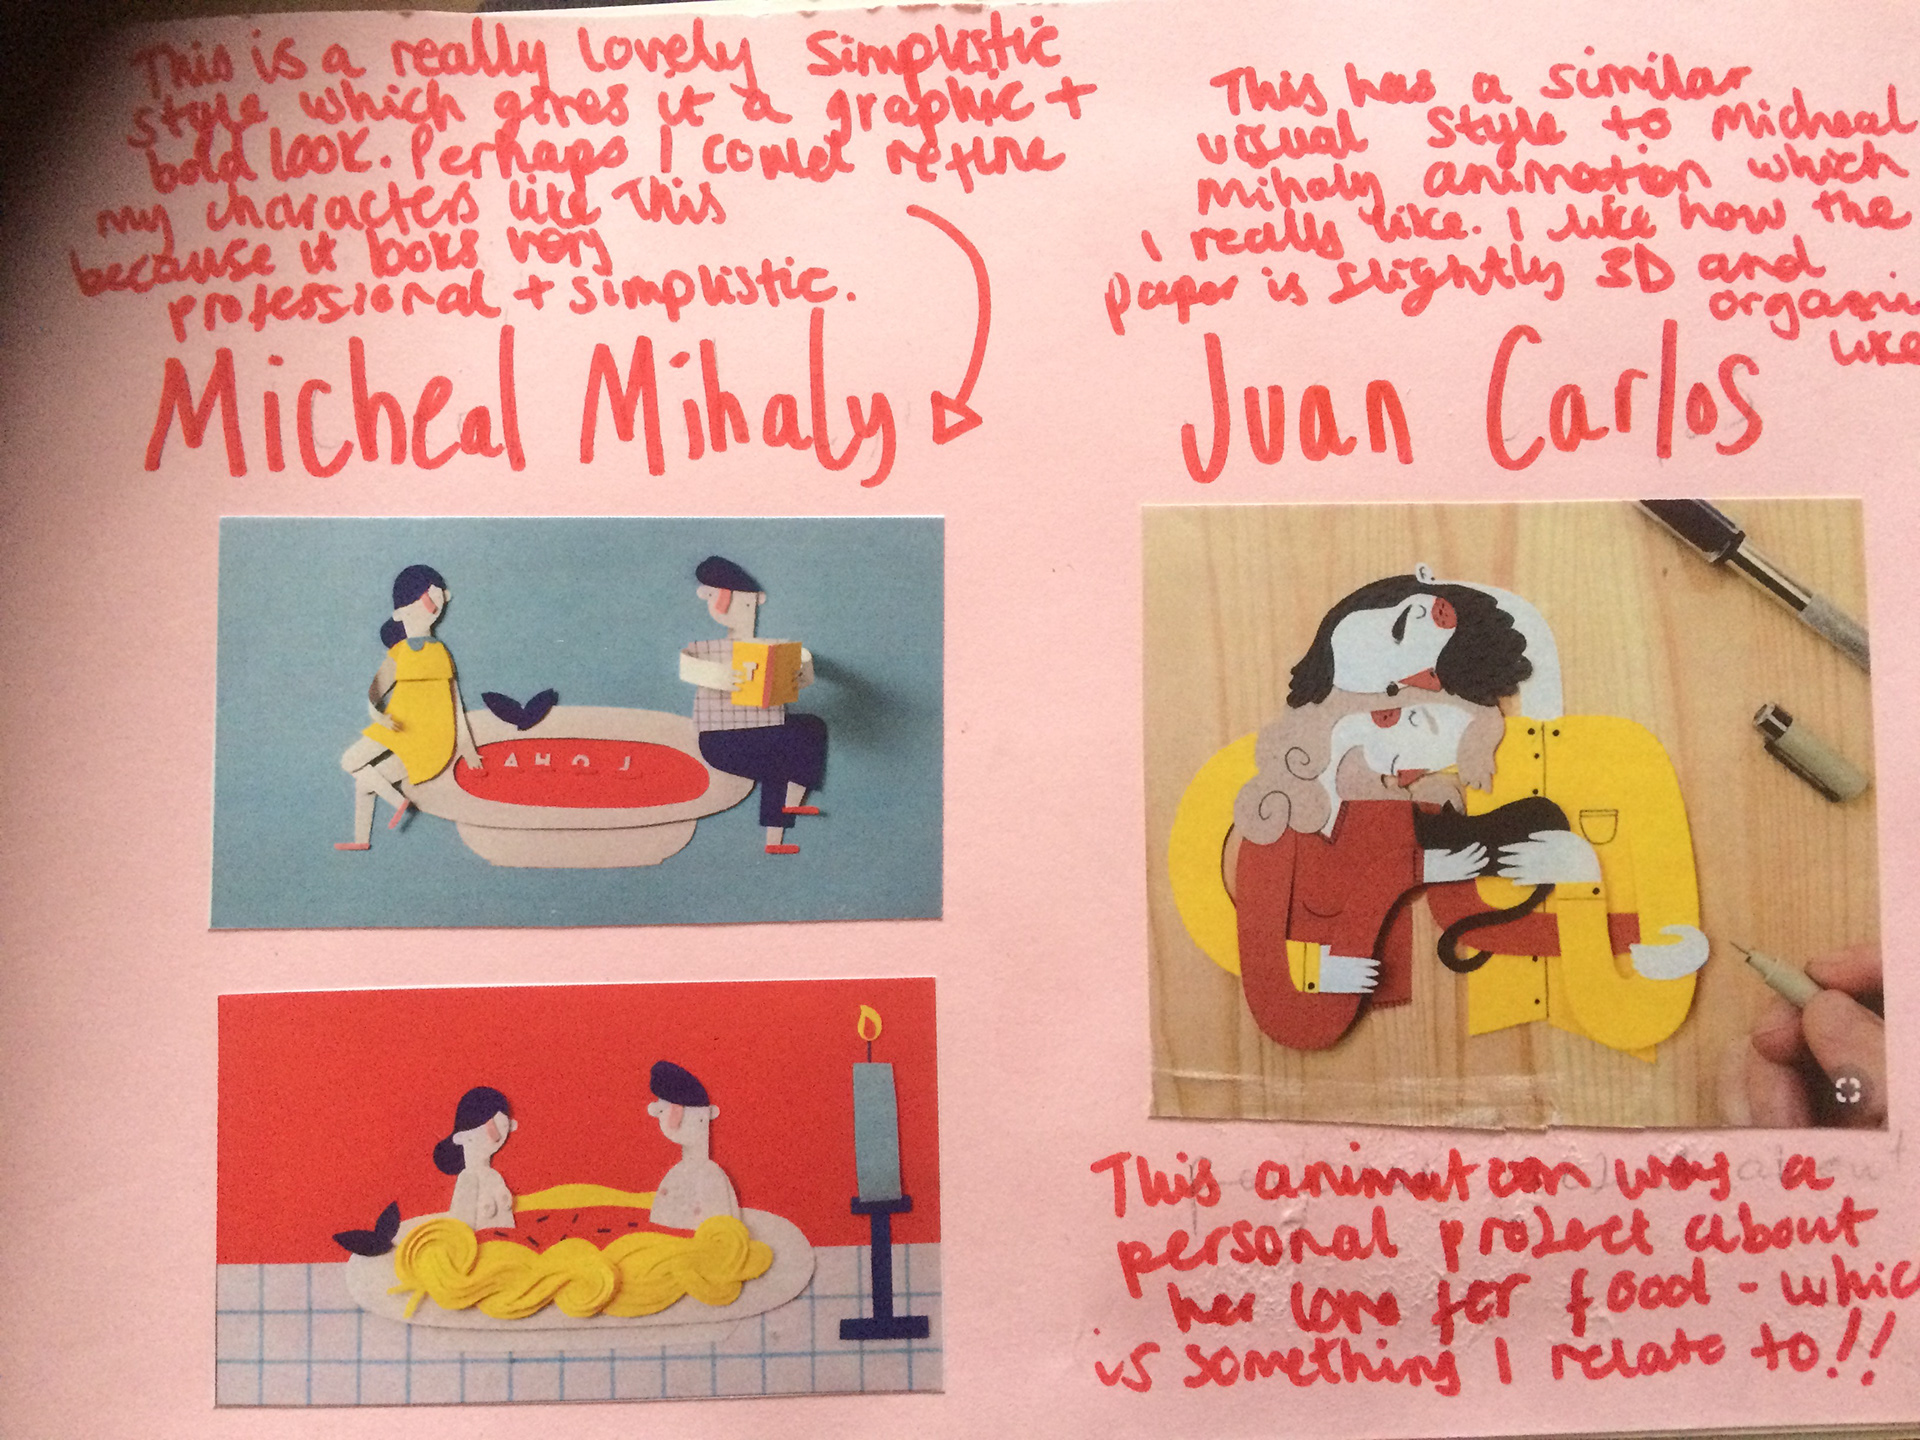 This is a really lovely simplistic
style which gives it a graphic +
bold look. Perhaps I could refine
my characters like this
because it looks very
professional + simplistic.
Micheal Mihaly
AHOJ
This has a similar
visual style to Micheal
Mihaly animation which
I really like. I like how the
paper is slightly 3D and
organi
like
Juan Carlos
This animation was a
personal project about
her love for food - whic
is something I relate to!!